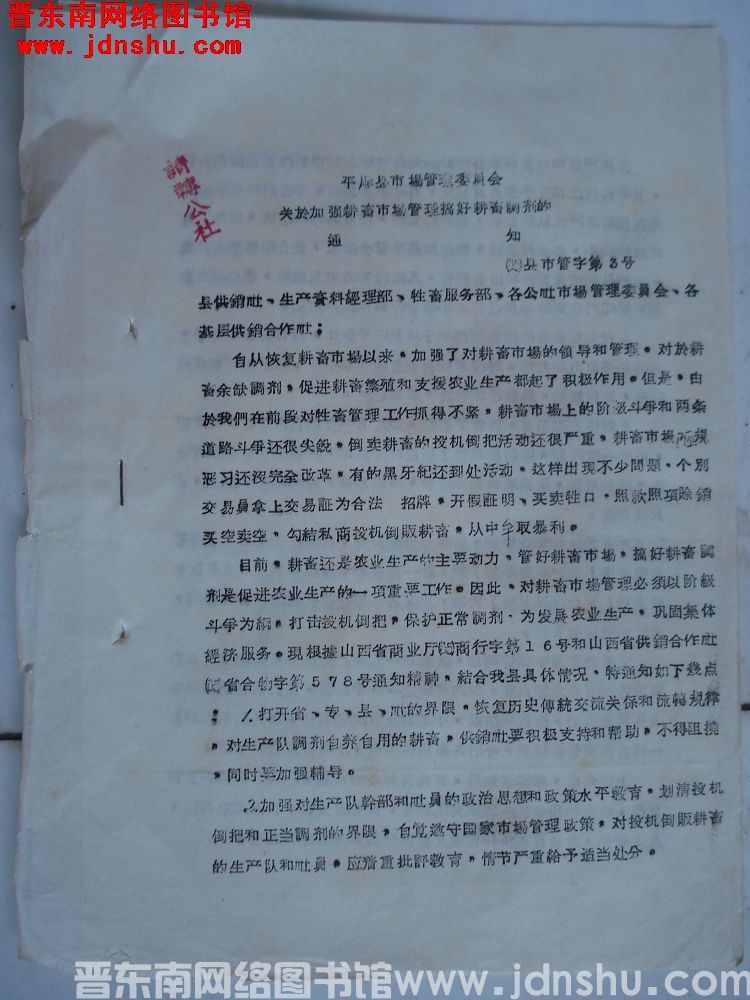 晋东南网络图书馆
www.jdnshu.com
公社
平顺县市場管理委員会
关於加强耕畜市場管理搞好耕畜調剂的
通 知
县市管字第3号
县供銷社、生产資料經理部、牲畜服务部、各公社市場管理委員会、各
基层供銷合作社：
自从恢复耕畜市場以来，加强了对耕畜市場的領导和管理，对於耕
畜余缺調剂，促进耕畜繁殖和支援农业生产都起了积极作用。但是，由
於我們在前段对牲畜管理工作抓得不紧，耕畜市場上的阶级斗爭和两条
道路斗爭还很尖銳，倒卖耕畜的投机倒把活动还很严重，耕畜市場
恶习还沒完全改革，有的黑牙紀还到处活动，这样出现不少問題，个别
交易員拿上交易証为合法 招牌，开假証明、买卖牲口，照款照項除銷
买空卖空，勾結私商投机倒販耕畜，从中牟取暴利。
目前，耕畜还是农业生产的主要动力，管好耕畜市場，搞好耕畜調
剂是促进农业生产的一項重要工作。因此，对耕畜市場管理必須以阶級
斗爭为綱，打击投机倒把，保护正常調剂，为发展农业生产，巩固集体
經济服务。现根據山西省商业厅商行字第16号和山西省供銷合作社
省合物字第578号通知精神，結合我县具体情况，特通知如下幾点
： 1.打开省、专、县、社的界限，恢复历史傳統交流关係和流轉規律
，对生产队調剂自养自用的耕畜，供銷社要积极支持和帮助，不得阻撓
，同时要加强輔导。
2.加强对生产队幹部和社員的政治思想和政策水平教育，划清投机
倒把和正当調剂的界限，自觉遵守囯家市場管理政策，对投机倒販耕畜
的生产队和社員，应着重批評教育，情节严重給予适当处分。
晋东南网络图书馆 www.jdnshu.com